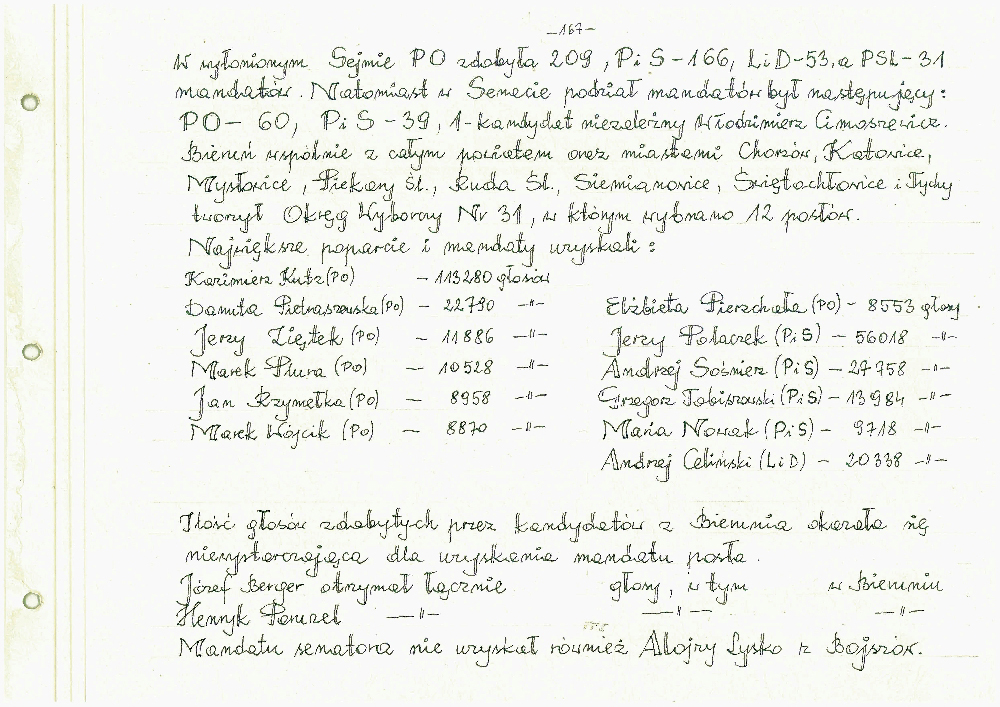 -167-
W wyłonionym Sejmie PO zdobyła 209, PiS-166, LiD-53, a PSL-31
mandatów. Natomiast w Senacie podział mandatów był następujący:
PO- 60, PiS-39, 1-kandydat niezależny Włodzimierz Cimoszewicz.
Bieruń wspólnie z całym powiatem oraz miastami Chorzów, Katowice,
Mysłowice, Piekary Śl., Ruda Śl., Siemianowice, Świętochłowice i Tychy
tworzył Okręg Wyborczy Nr 31, w którym wybrano 12 posłów.
Największe poparcie i mandaty uzyskali:
Kazimierz Kutz (PO) - 113280 głosów
Danuta Pietraszewska (PO) - 22790 -"-
Jerzy Ziętek (PO) - 11886 -"-
Marek Plura (PO) - 10528 -"-
Jan Rzymełka (PO) - 8958 -"-
Marek Wójcik (PO) - 8870 -"-
Elżbieta Pierzchała (PO) - 8553 głosy
Jerzy Polaczek (PiS) - 56018 -"-
Andrzej Sośnierz (PiS) - 27758 -"-
Grzegorz Tobiszowski (PiS) - 13984 -"-
Maria Nowak (PiS) - 9718 -"-
Andrzej Celiński (LiD) - 20338 -"-
Ilość głosów zdobytych przez kandydatów z Bierunia okazała się
niewystarczająca dla uzyskania mandatu posła.
Józef Berger otrzymał łącznie głosy, w tym w Bieruniu
Henryk -"- -"- -"-
Mandatu senatora nie uzyskał również Alojzy Lysko z Bojszów.